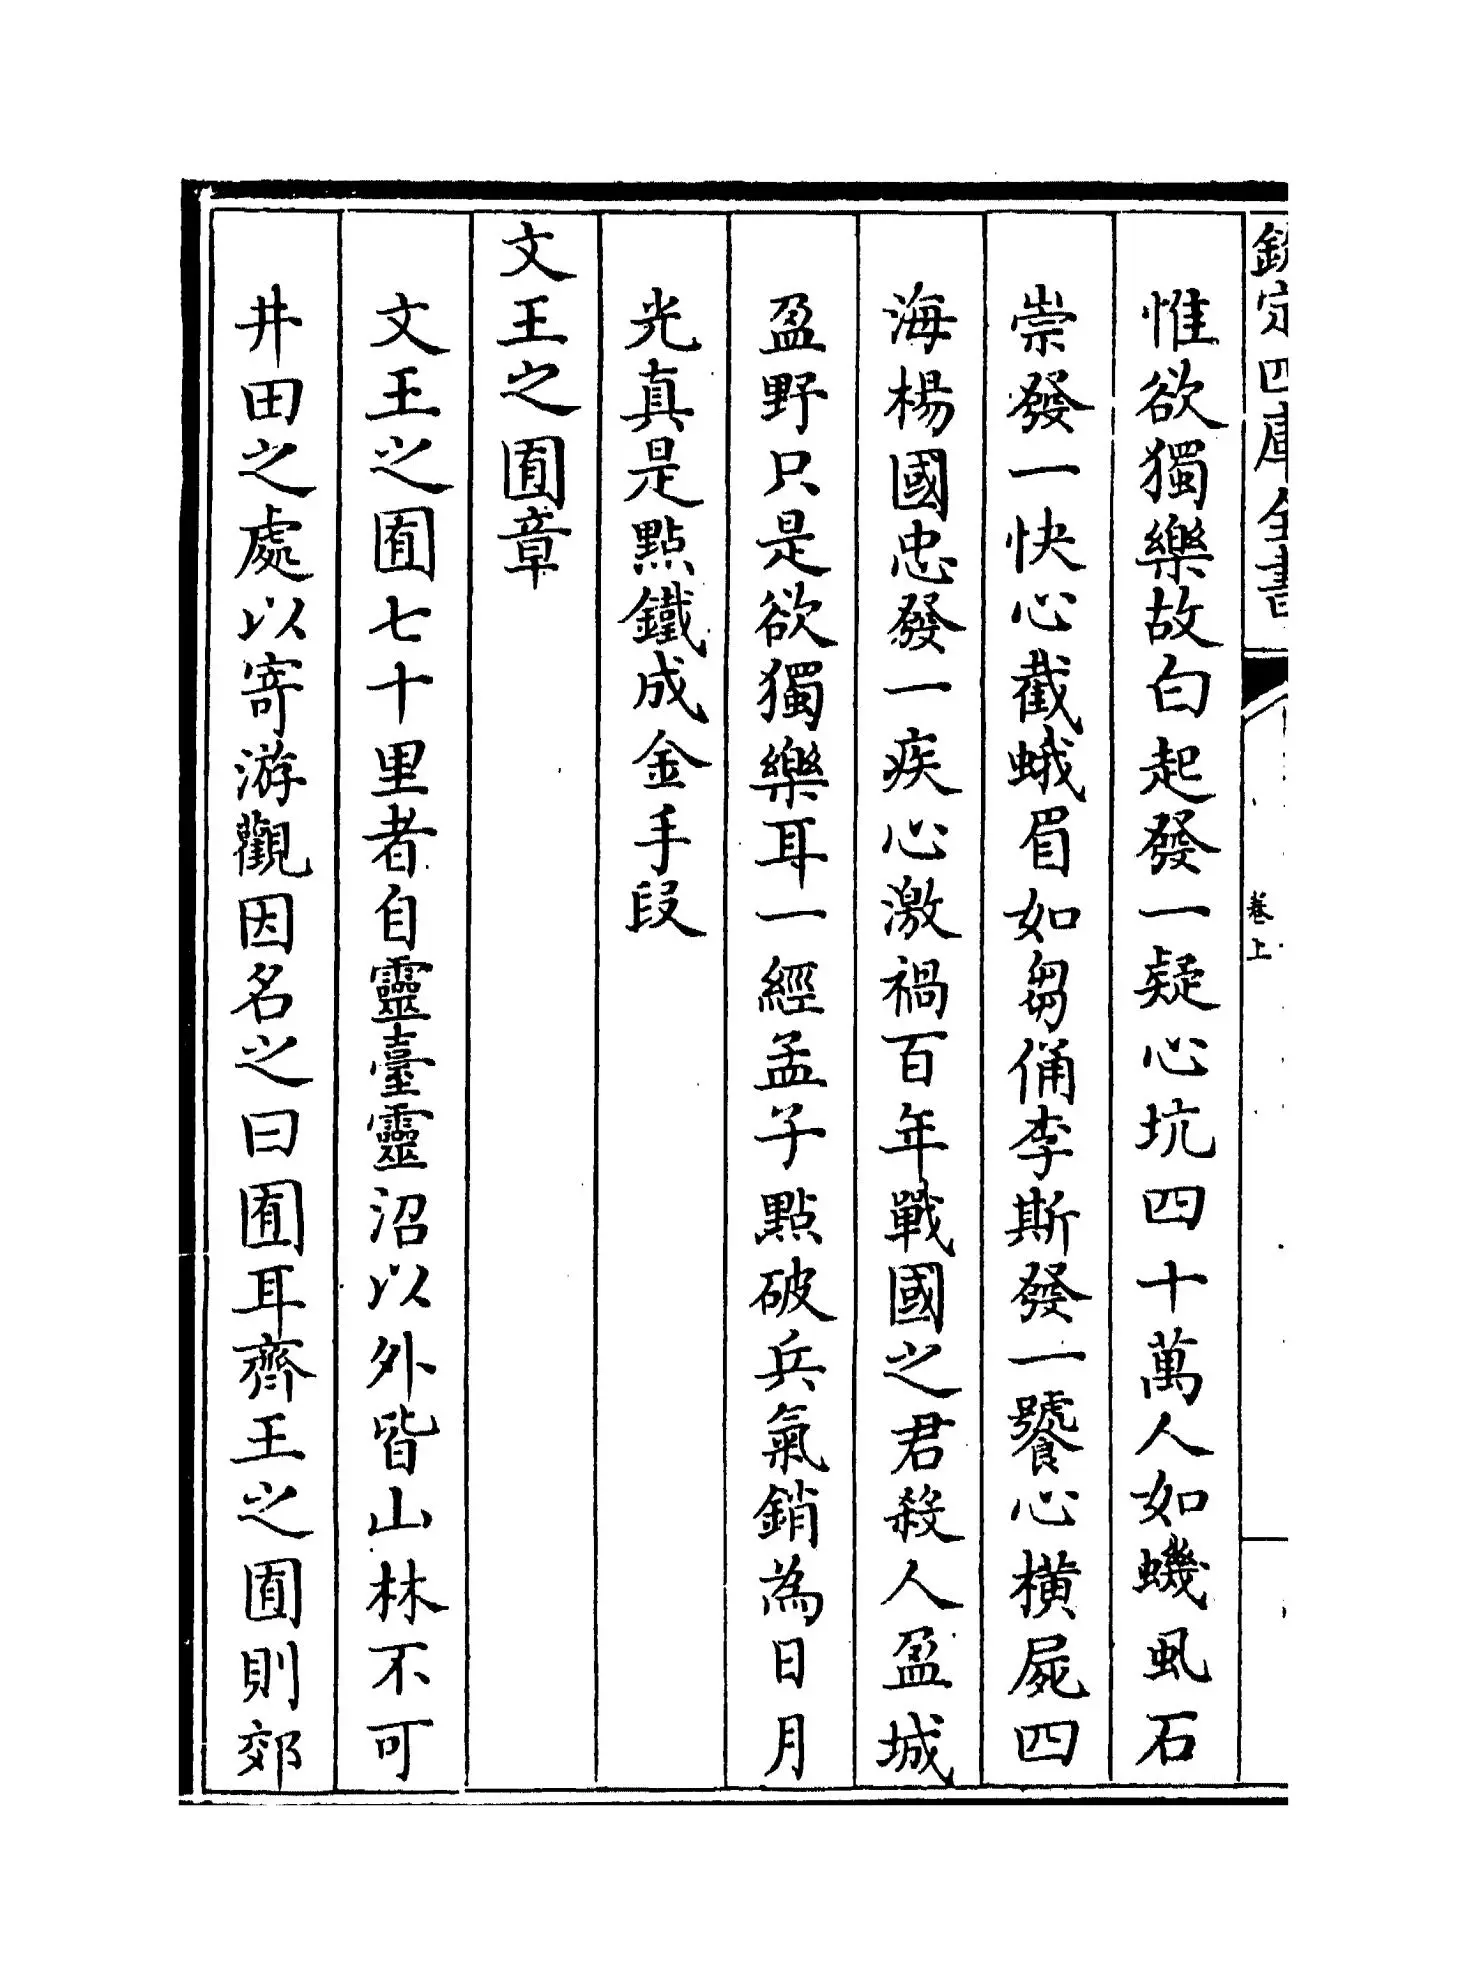 欽定四庫全書
卷上
惟欲獨樂故白起發一疑心坑四十萬人如蟣虱石
崇發一快心截蛾眉如芻俑李斯發一饕心橫屍四
海楊國忠發一疾心激禍百年戰國之君殺人盈城
盈野只是欲獨樂耳一經孟子點破兵氣銷為日月
光真是點鐵成金手段
文王之囿章
文王之囿七十里者自靈臺靈沼以外皆山林不可
井田之處以寄游觀因名之曰囿耳齊王之囿則郊